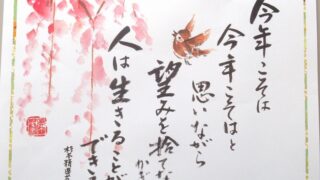 今年こそは
今年こそはと
思いながら
望みを捨てな
かぎ
人は生きることが
でき